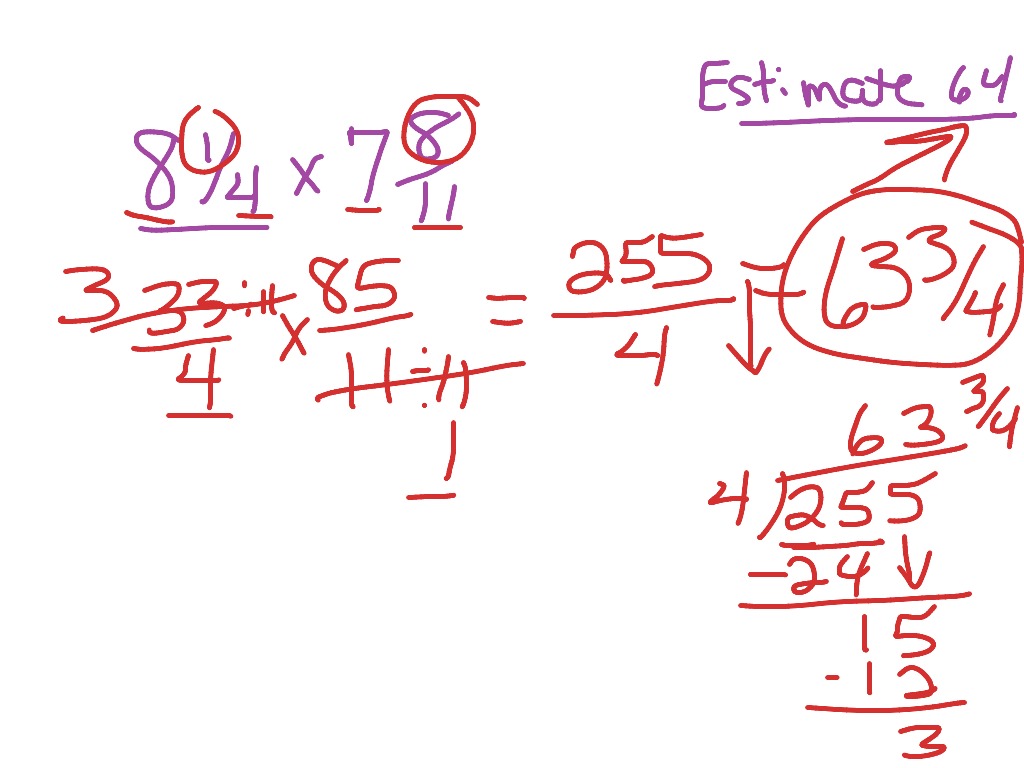 Estimate 64
8 1/4 x 7 8/11
3 33 ÷ 11 / 4 x 85 / 11 ÷ 11 = 255 / 4 = 63 3/4
1
63 3/4
4 ) 255
- 24
15
- 12
3